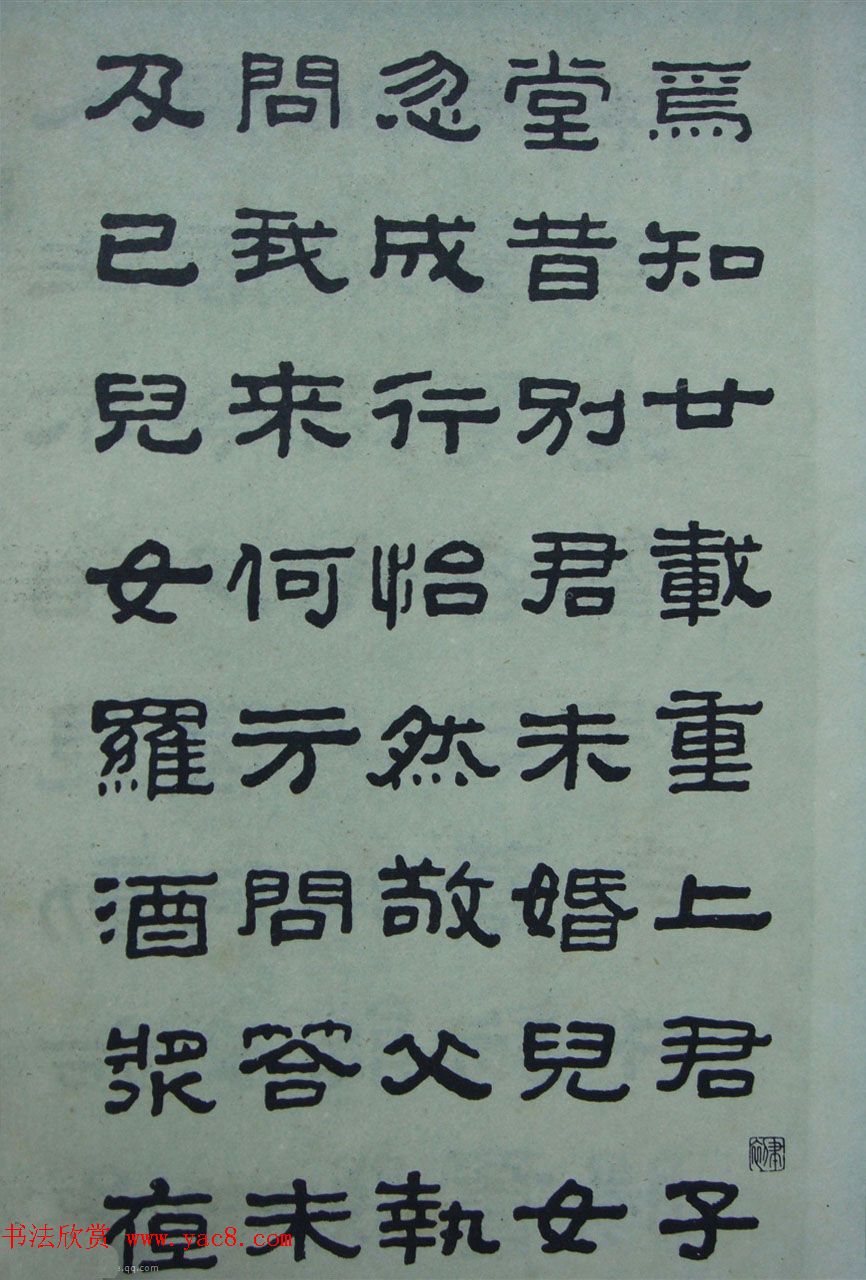 焉知廿載重上君子
堂昔別君未婚兒女
忽成行怡然敬父執
問我來何方問答未
及已兒女羅酒漿夜
书法欣赏 www.yac8.com
.qq.com